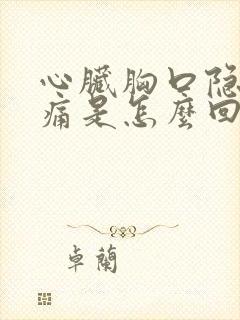 心臟胸口隐
痛是怎麼回
卓蘭